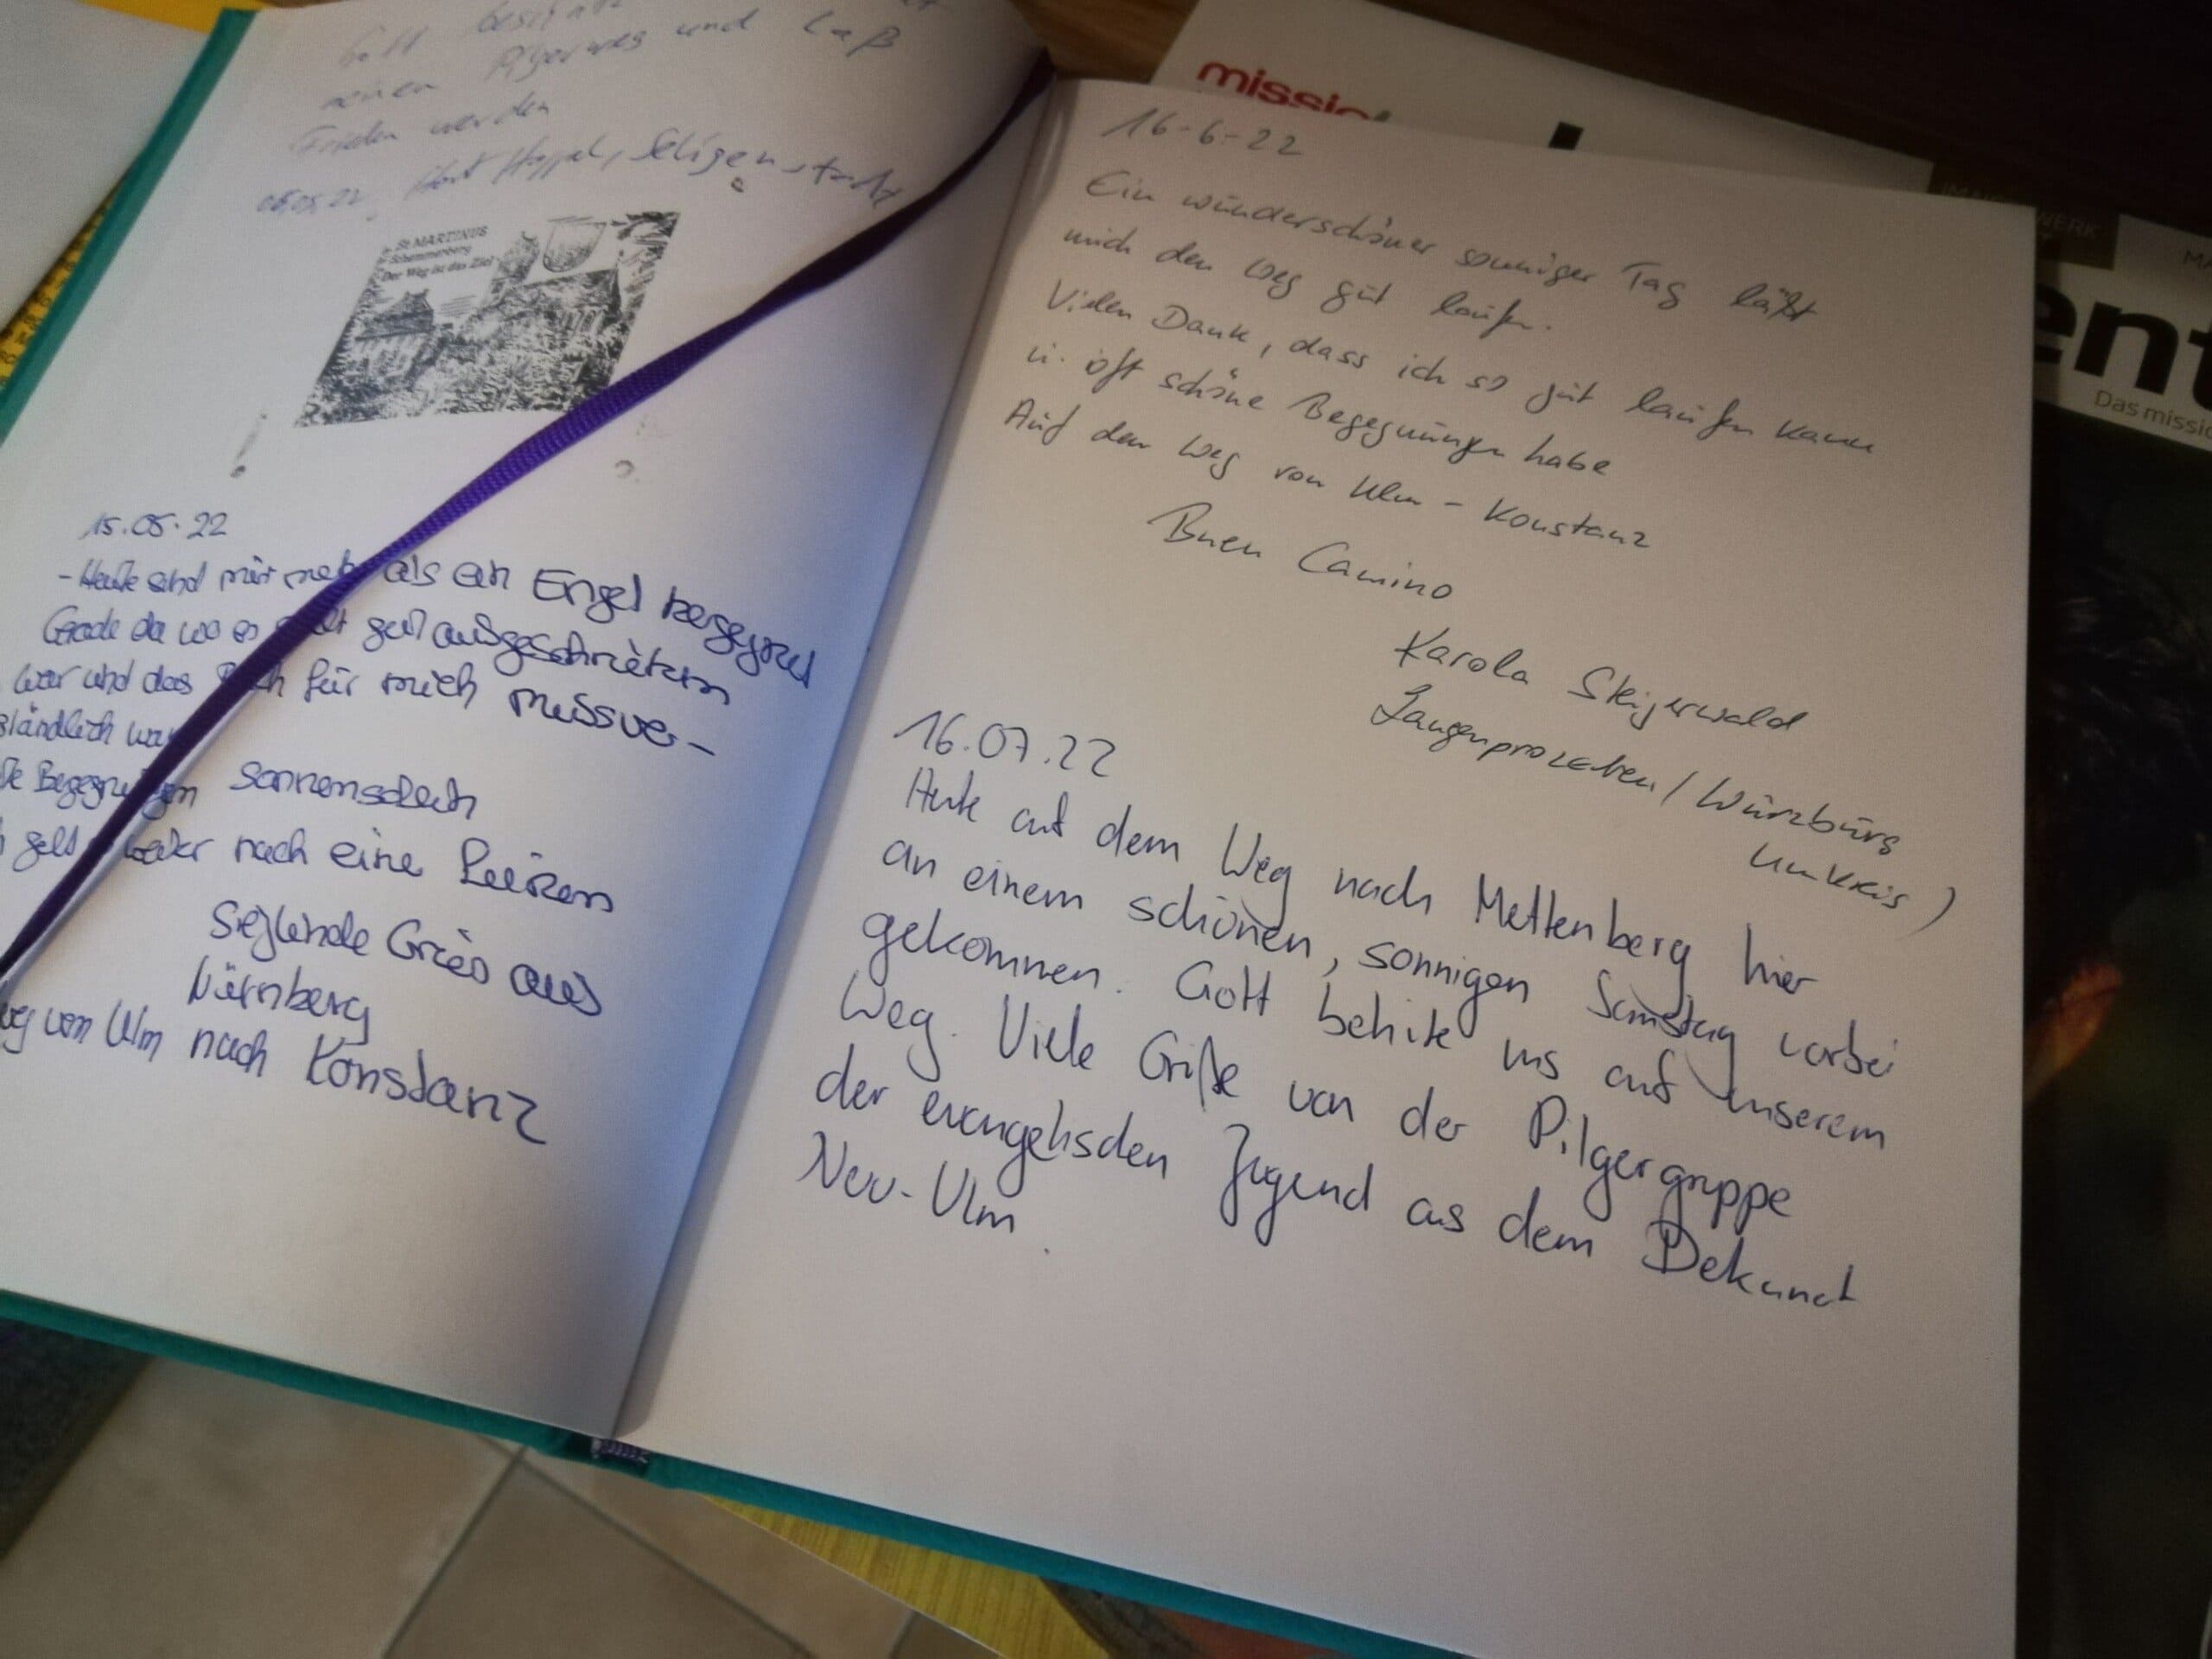 meinen Pilgerweg und Laß
Frieden werden
Seligenstadt
St. MARTINUS
Schemmerberg
Der Weg ist das Ziel
15.05.22
- Heute sind mir mehr als ein Engel begegnet
Grade da wo es gut ausgeschrieben
war und das für mich missver-
ständlich war
Begegnungen Sonnenschein
weiter nach eine
Sieglinde Gries aus
Nürnberg
von Ulm nach Konstanz
missio
16-6-22
Ein wunderschöner sonniger Tag läßt
mich den Weg gut laufen.
Vielen Dank, dass ich so gut laufen kann
u. oft schöne Begegnungen habe
Auf dem Weg von Ulm - Konstanz
Buen Camino
Karola Steigerwald
Langenprozelten / Würzburg
Umkreis )
16.07.22
Heute auf dem Weg nach Mettenberg hier
an einem schönen, sonnigen Samstag vorbei
gekommen. Gott behüte uns auf unserem
Weg. Viele Grüße von der Pilgergruppe
der evangelischen Jugend aus dem Dekanat
Neu-Ulm.
ent